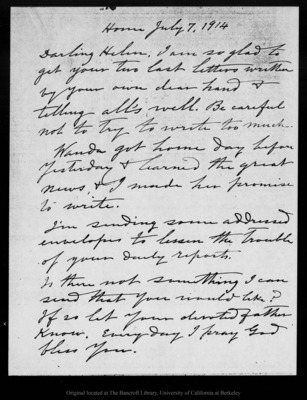 Home July 7, 1914
Darling Helen, I am so glad to
get your two last letters written
by your own dear hand &
telling all's well. Be careful
not to try to write too much.
Wanda got home day before
yesterday & learned the great
news, & I made her promise
to write.
I'm sending some addressed
envelopes to lessen the trouble
of your daily reports.
Is there not something I can
send that you would like?
If so let your devoted father
know. Every day I pray God
bless you.
Original located at The Bancroft Library, University of California at Berkeley